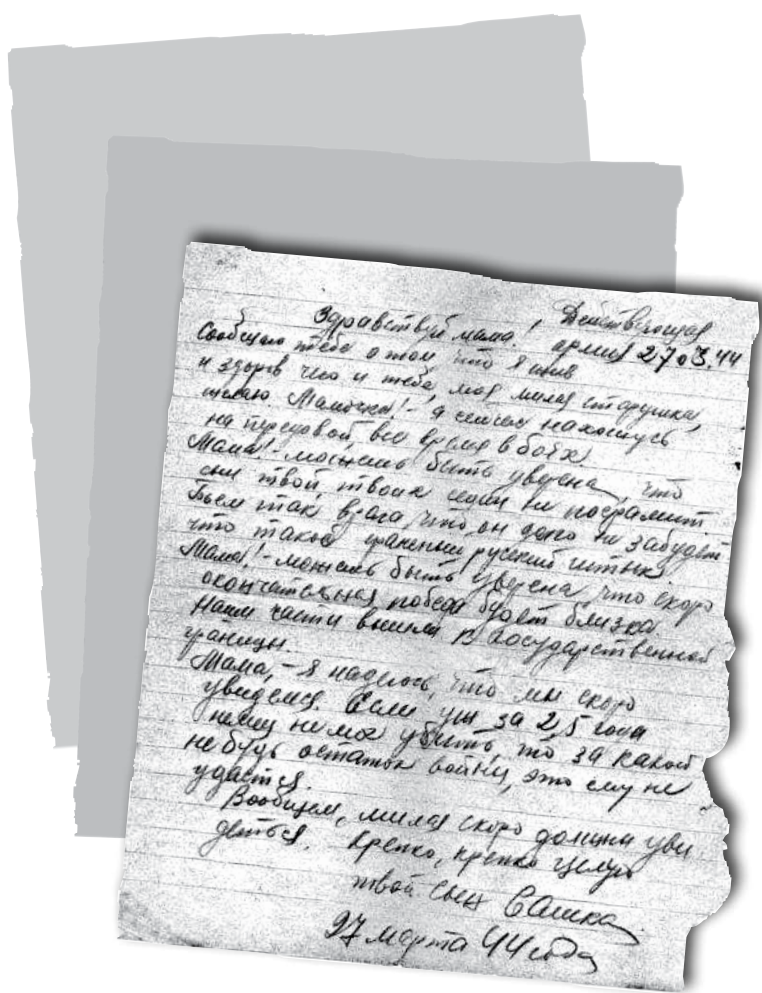 Действующая
Здравствуй мама! армия 27.03.44
Сообщаю тебе о том, что я жив
и здоров чего и тебе, моя милая старушка,
желаю. Мамочка! - я сейчас нахожусь
на передовой, все время в боях.
Мама! - можешь быть уверена, что
сын твой, твоих седин не посрамит.
Бьем так врага, что он долго не забудет
что такое граненый русский штык.
Мама! - можешь быть уверена, что скоро
окончательная победа будет близка.
Наши части вышли к государственной
границы.
Мама, - я надеюсь, что мы скоро
увидемся. Если уж за 2,5 года
немец не мог убить, то за какой
не будь остаток войны, это ему не
удастся.
Вообщем, милая скоро должны уви
деться. Крепко, крепко целую
твой сын Сашка
27 марта 44 года